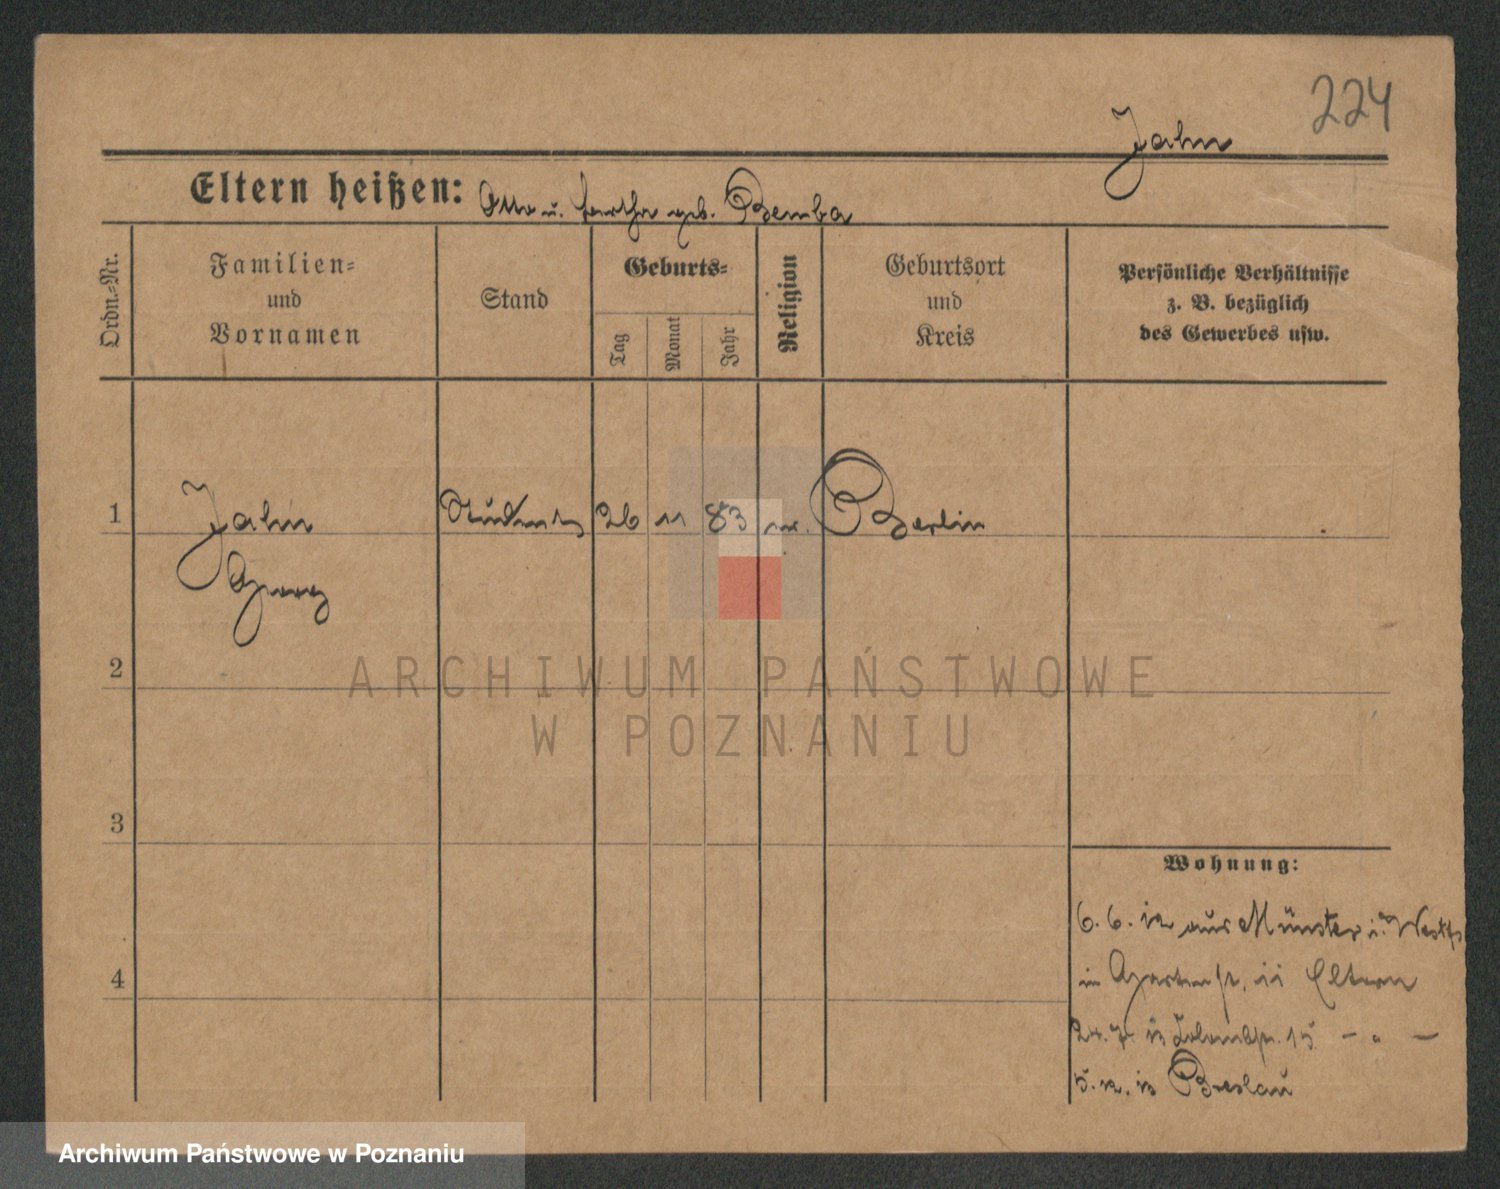 224
Jahn
Eltern heißen: Otto u. Bertha geb. Bemba
Ordn.-Nr.
Familien-
und
Vornamen
Stand
Geburts-
Tag
Monat
Jahr
Religion
Geburtsort
und
Kreis
Persönliche Verhältnisse
z. B. bezüglich
des Gewerbes usw.
1 Jahn Student 26 11 83 Berlin
Georg
ARCHIWUM PAŃSTWOWE
W POZNANIU
2
3
4
Wohnung:
6. 6. 12 aus Münster i. Westf
in Gartenstr. 11 Eltern
24. 7. in 15 — " —
5. 12. in Breslau
Archiwum Państwowe w Poznaniu